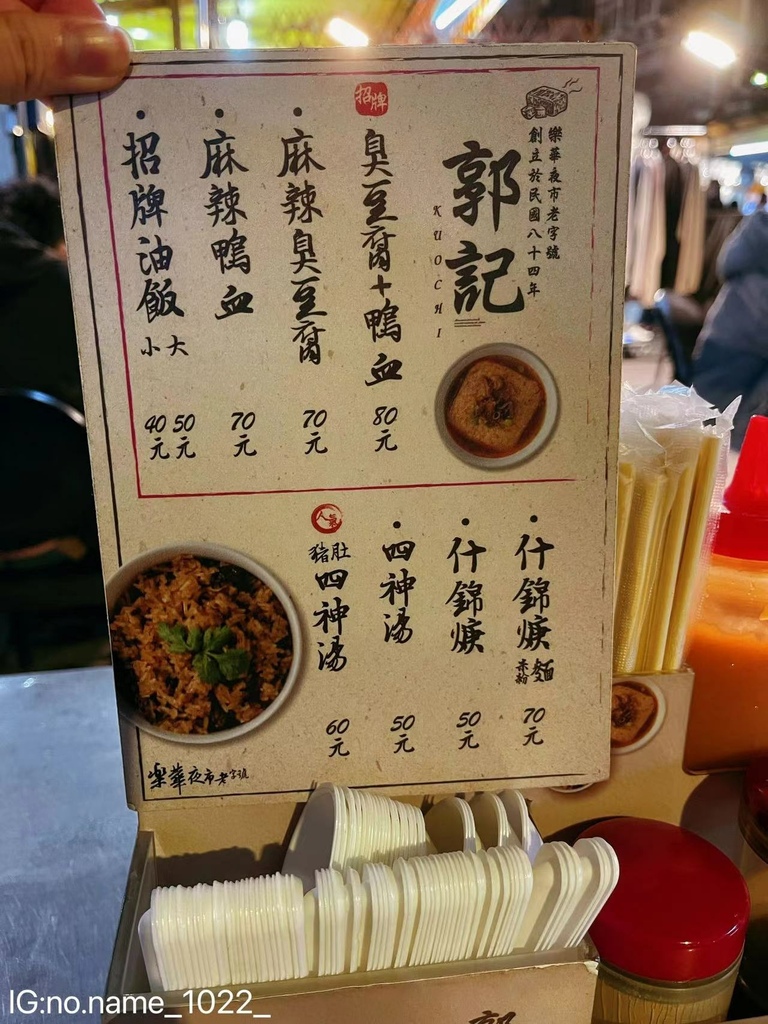 樂華夜市老字號
創立於民國八十四年
郭記
KUO CHI
招牌
臭豆腐+鴨血 80元
麻辣臭豆腐 70元
麻辣鴨血 70元
招牌油飯 大 50元
小 40元
什錦焿麵 70元
米粉
什錦焿 50元
四神湯 50元
人氣
豬肚四神湯 60元
樂華夜市老字號
郭
IG:no.name_1022_